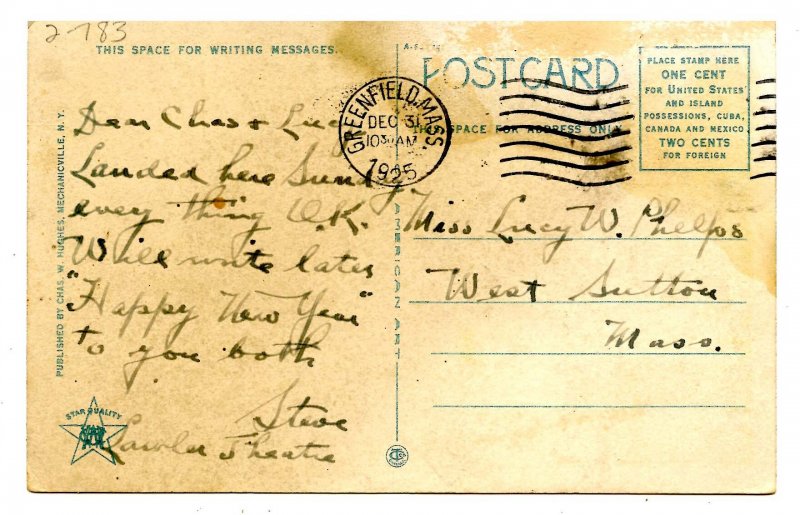 2-783
THIS SPACE FOR WRITING MESSAGES.
POSTCARD
THIS SPACE FOR ADDRESS ONLY.
PLACE STAMP HERE
ONE CENT
FOR UNITED STATES
AND ISLAND
POSSESSIONS, CUBA,
CANADA AND MEXICO
TWO CENTS
FOR FOREIGN
GREENFIELD, MASS.
DEC 31
1030AM
1925
Dear Chas + Lucy
Landed here Sund
every thing O.K.
Will write later
"Happy New Year"
to you both
Steve
Lawler Theatre
Miss Lucy W. Phelps
West Sutton
Mass.
PUBLISHED BY CHAS. W. HUGHES, MECHANICVILLE, N.Y.
AMERICAN ART
STAR QUALITY